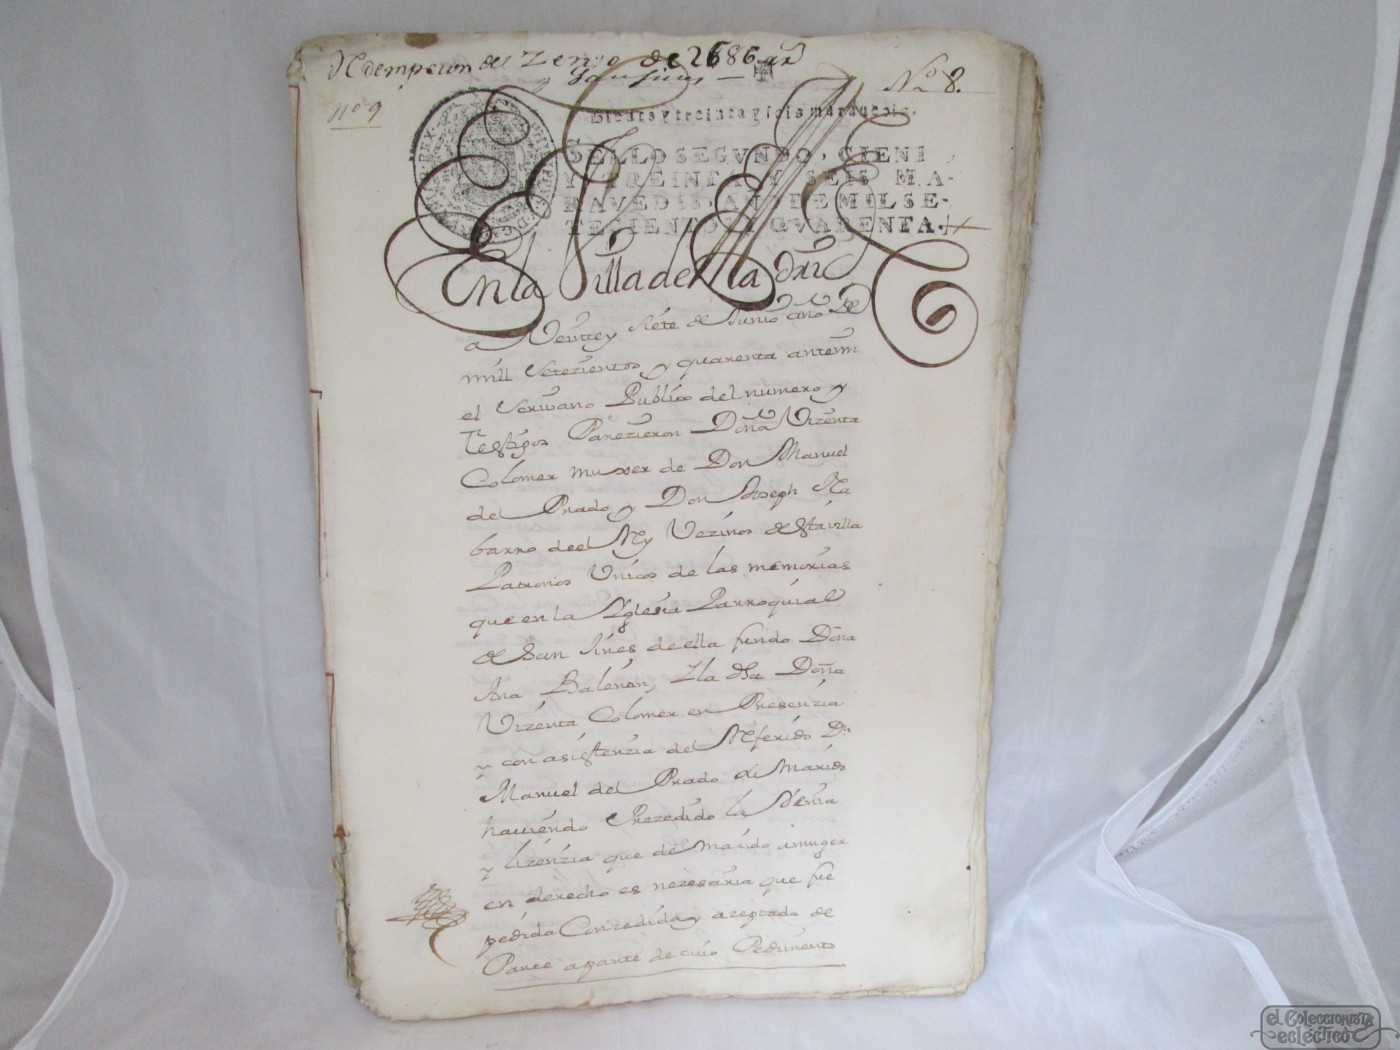 Redempcion del Zenso de 2686 rs
Nº 8.
nº 9
ziento y treinta y seis maravedis.
SELLO SEGVNDO, CIENT
Y TREINTA Y SEIS MA-
RAVEDIS, AÑO DE MIL SE-
TECIENTOS Y QVARENTA.
En la Villa de Madrid
a Veintey siete de Junio año de
mill Setezientos y quarenta antemi
el Scrivano Publico del numero y
Testigos Parezieron Doña Vizenta
Colomer muxer de Don Manuel
de Prado y Don Joseph Na
barro del Rey Vezinos de esta villa
Patronos Unicos de las memorias
que en la Yglesia Parroquial
de San Jines de ella fundo Doña
Ana Balenan, Y la dha Doña
Vizenta Colomer en Presenzia
y con asistenzia del Referido Dn
Manuel del Prado su Marido
haviendo Prezedido la Venia
y lizenzia que de Marido a muger
en derecho es nezesaria que fue
pedida Conzedida y azeptada de
Parte a parte de cuio Pedimento
el Coleccionista
eclectico